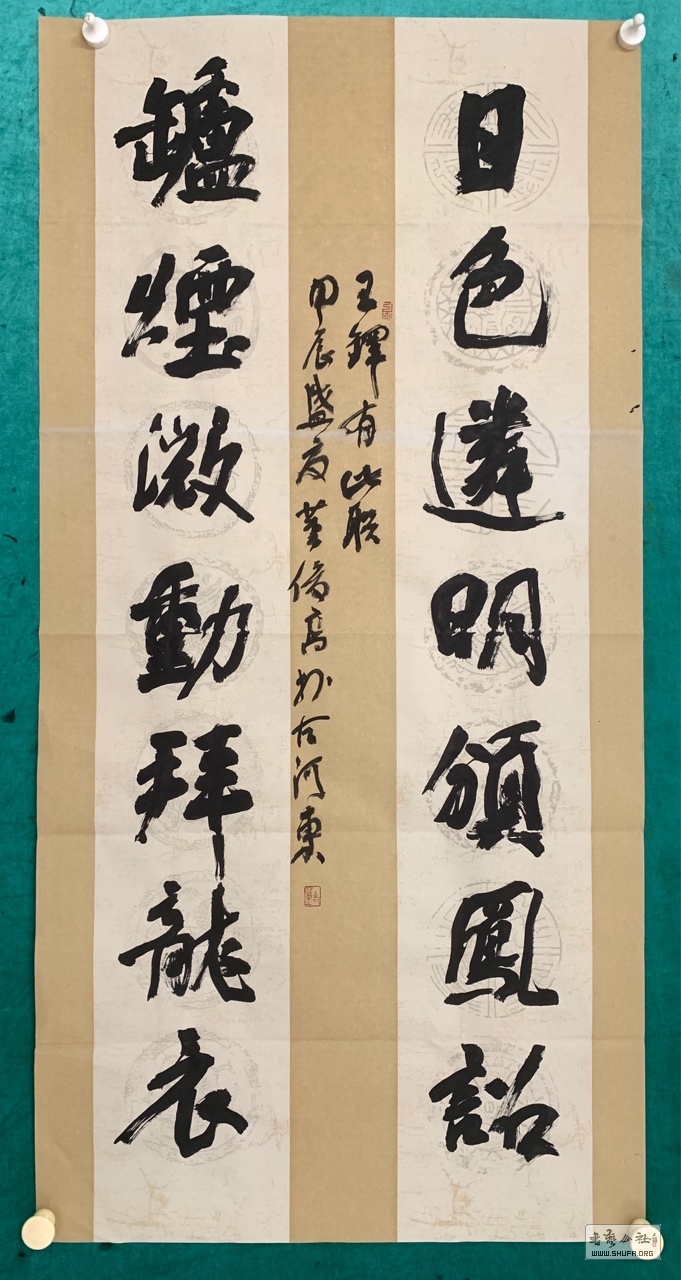 日色遴明頒鳳詔
鑪煙微動拜龍衣
王鐸有此聯
甲辰盛夏董儒高於古河東
書藝公社
WWW.SHUFA.ORG